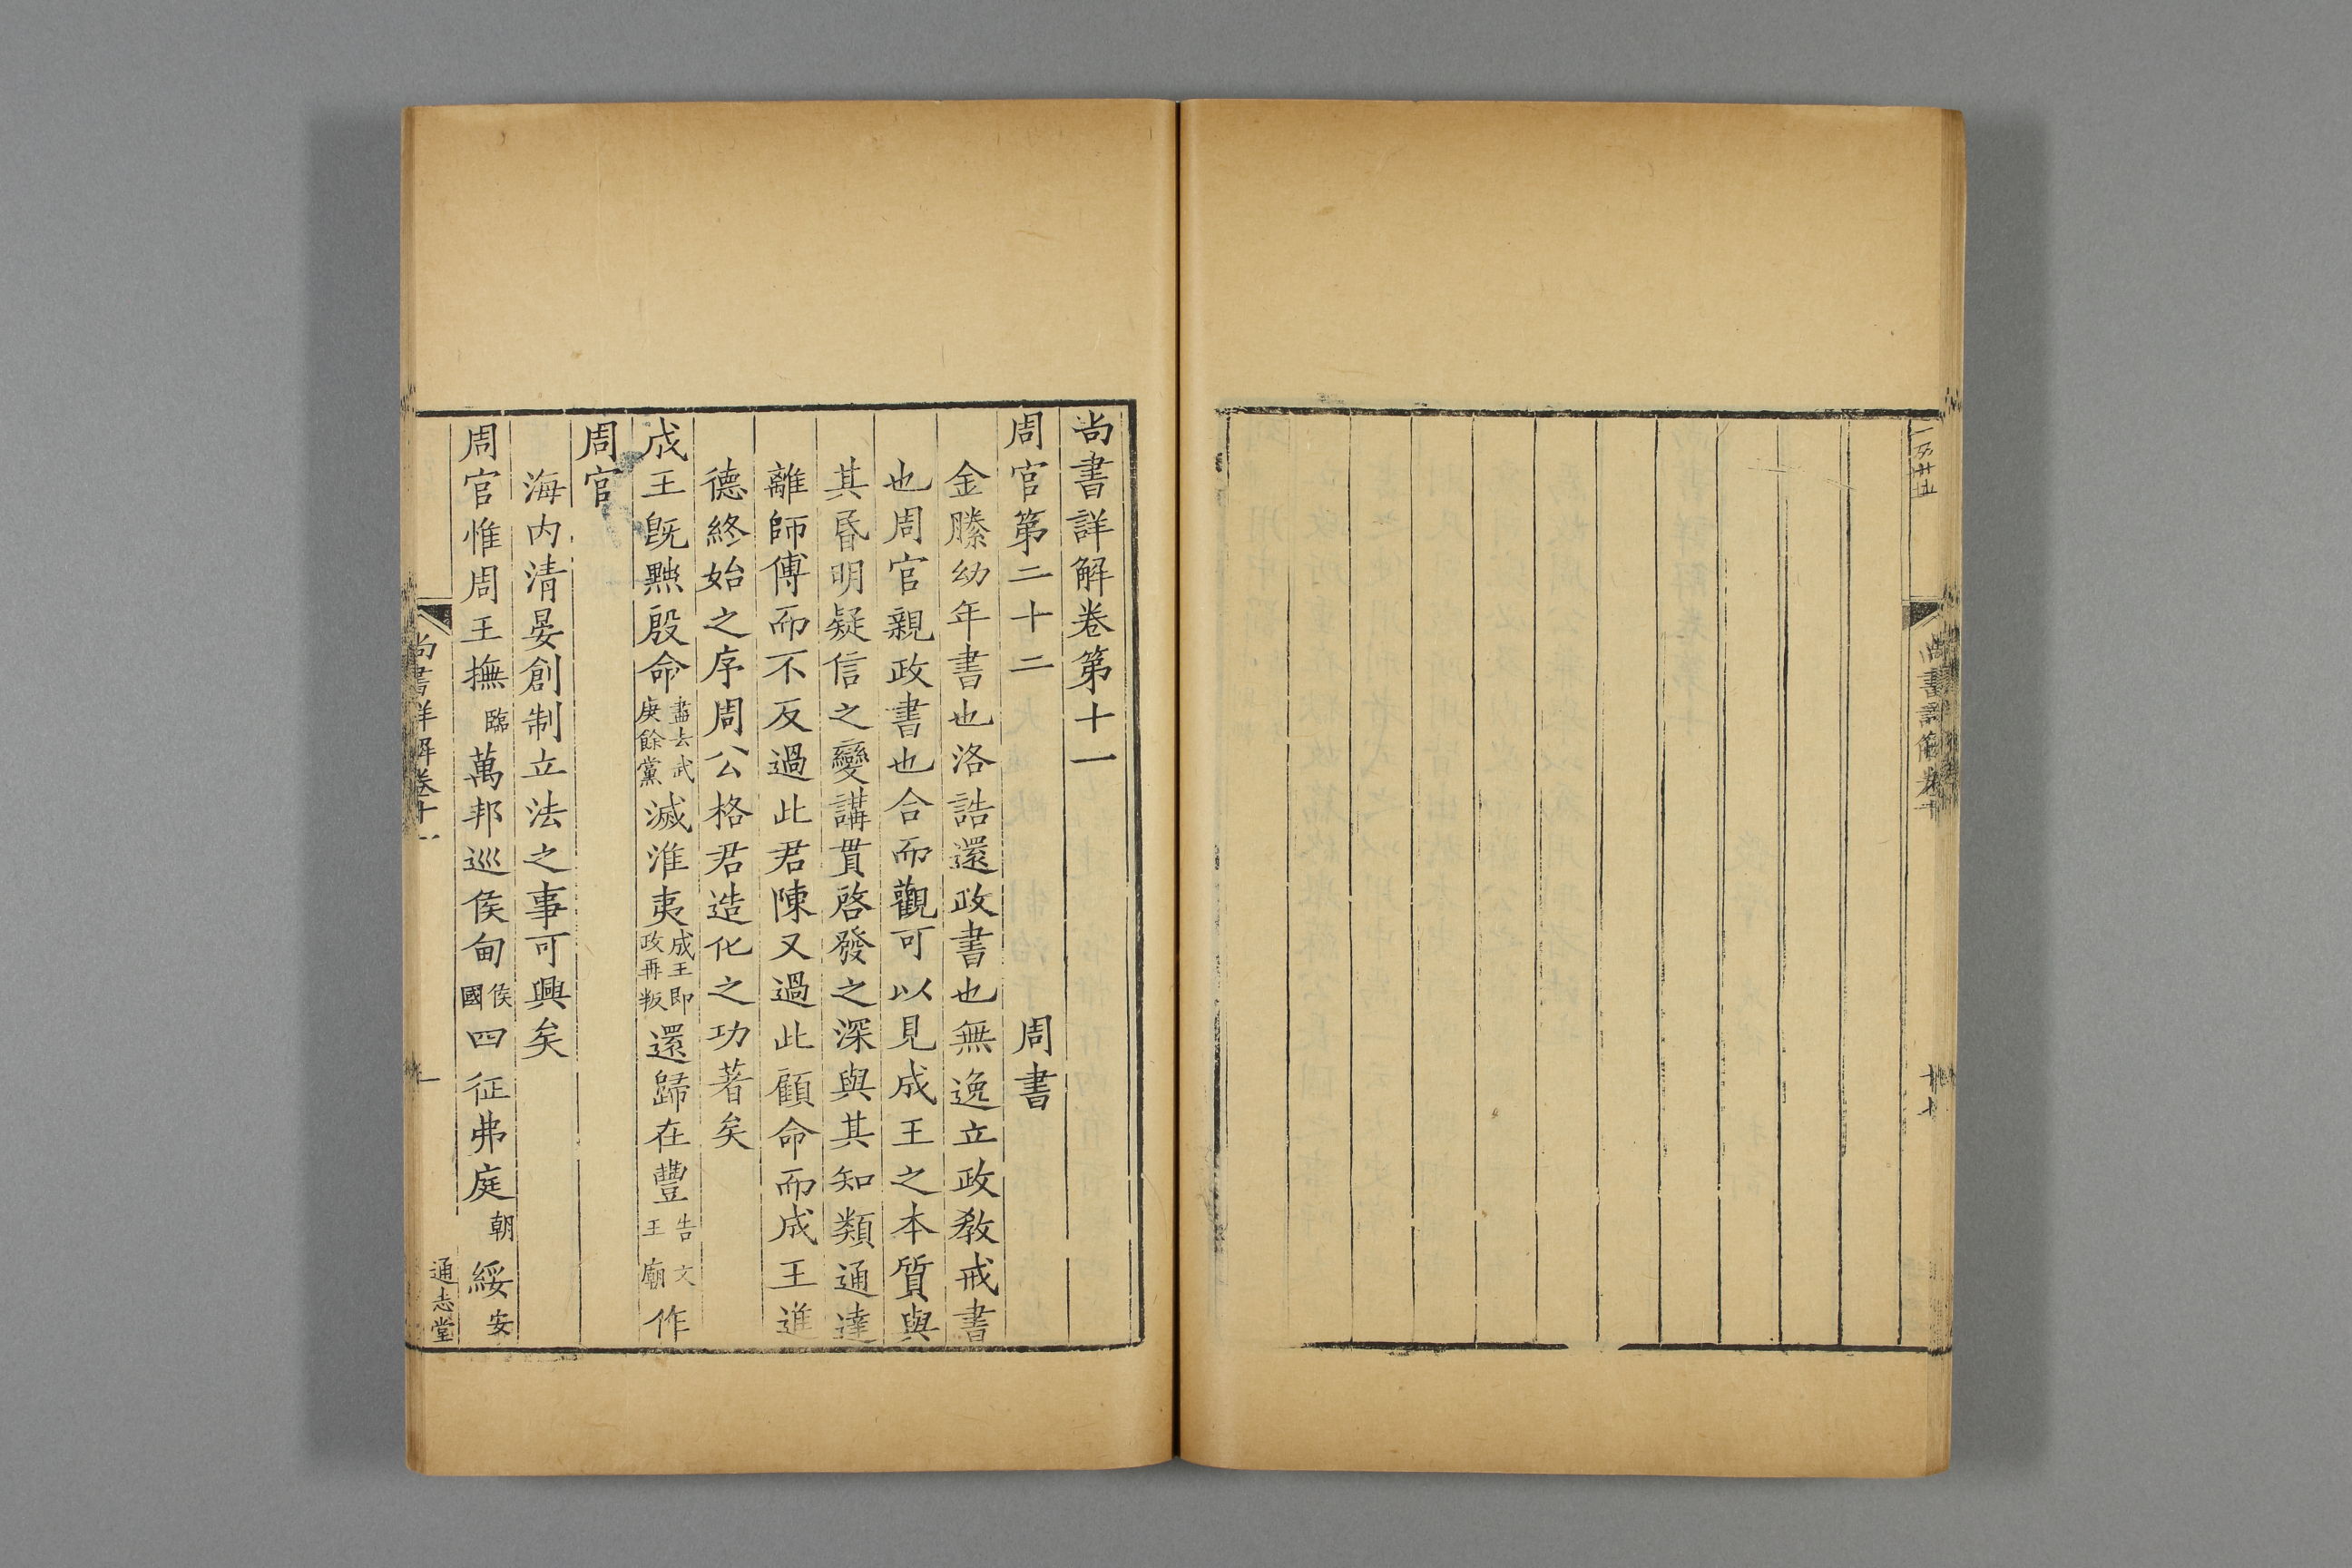 尚書詳解卷第十一
周官第二十二 周書
金縢幼年書也洛誥還政書也無逸立政教戒書
也周官親政書也合而觀可以見成王之本質與
其昬明疑信之變講貫啓發之深與其知類通達
離師傅而不反過此君陳又過此顧命而成王進
德終始之序周公格君造化之功著矣
成王旣黜殷命盡去武庚餘黨滅淮夷成王即政再叛還歸在豐告文王廟作
周官
海内清晏創制立法之事可興矣
周官惟周王撫臨萬邦巡侯甸侯國四征弗庭朝綏安
尚書詳解卷十一 一 通志堂